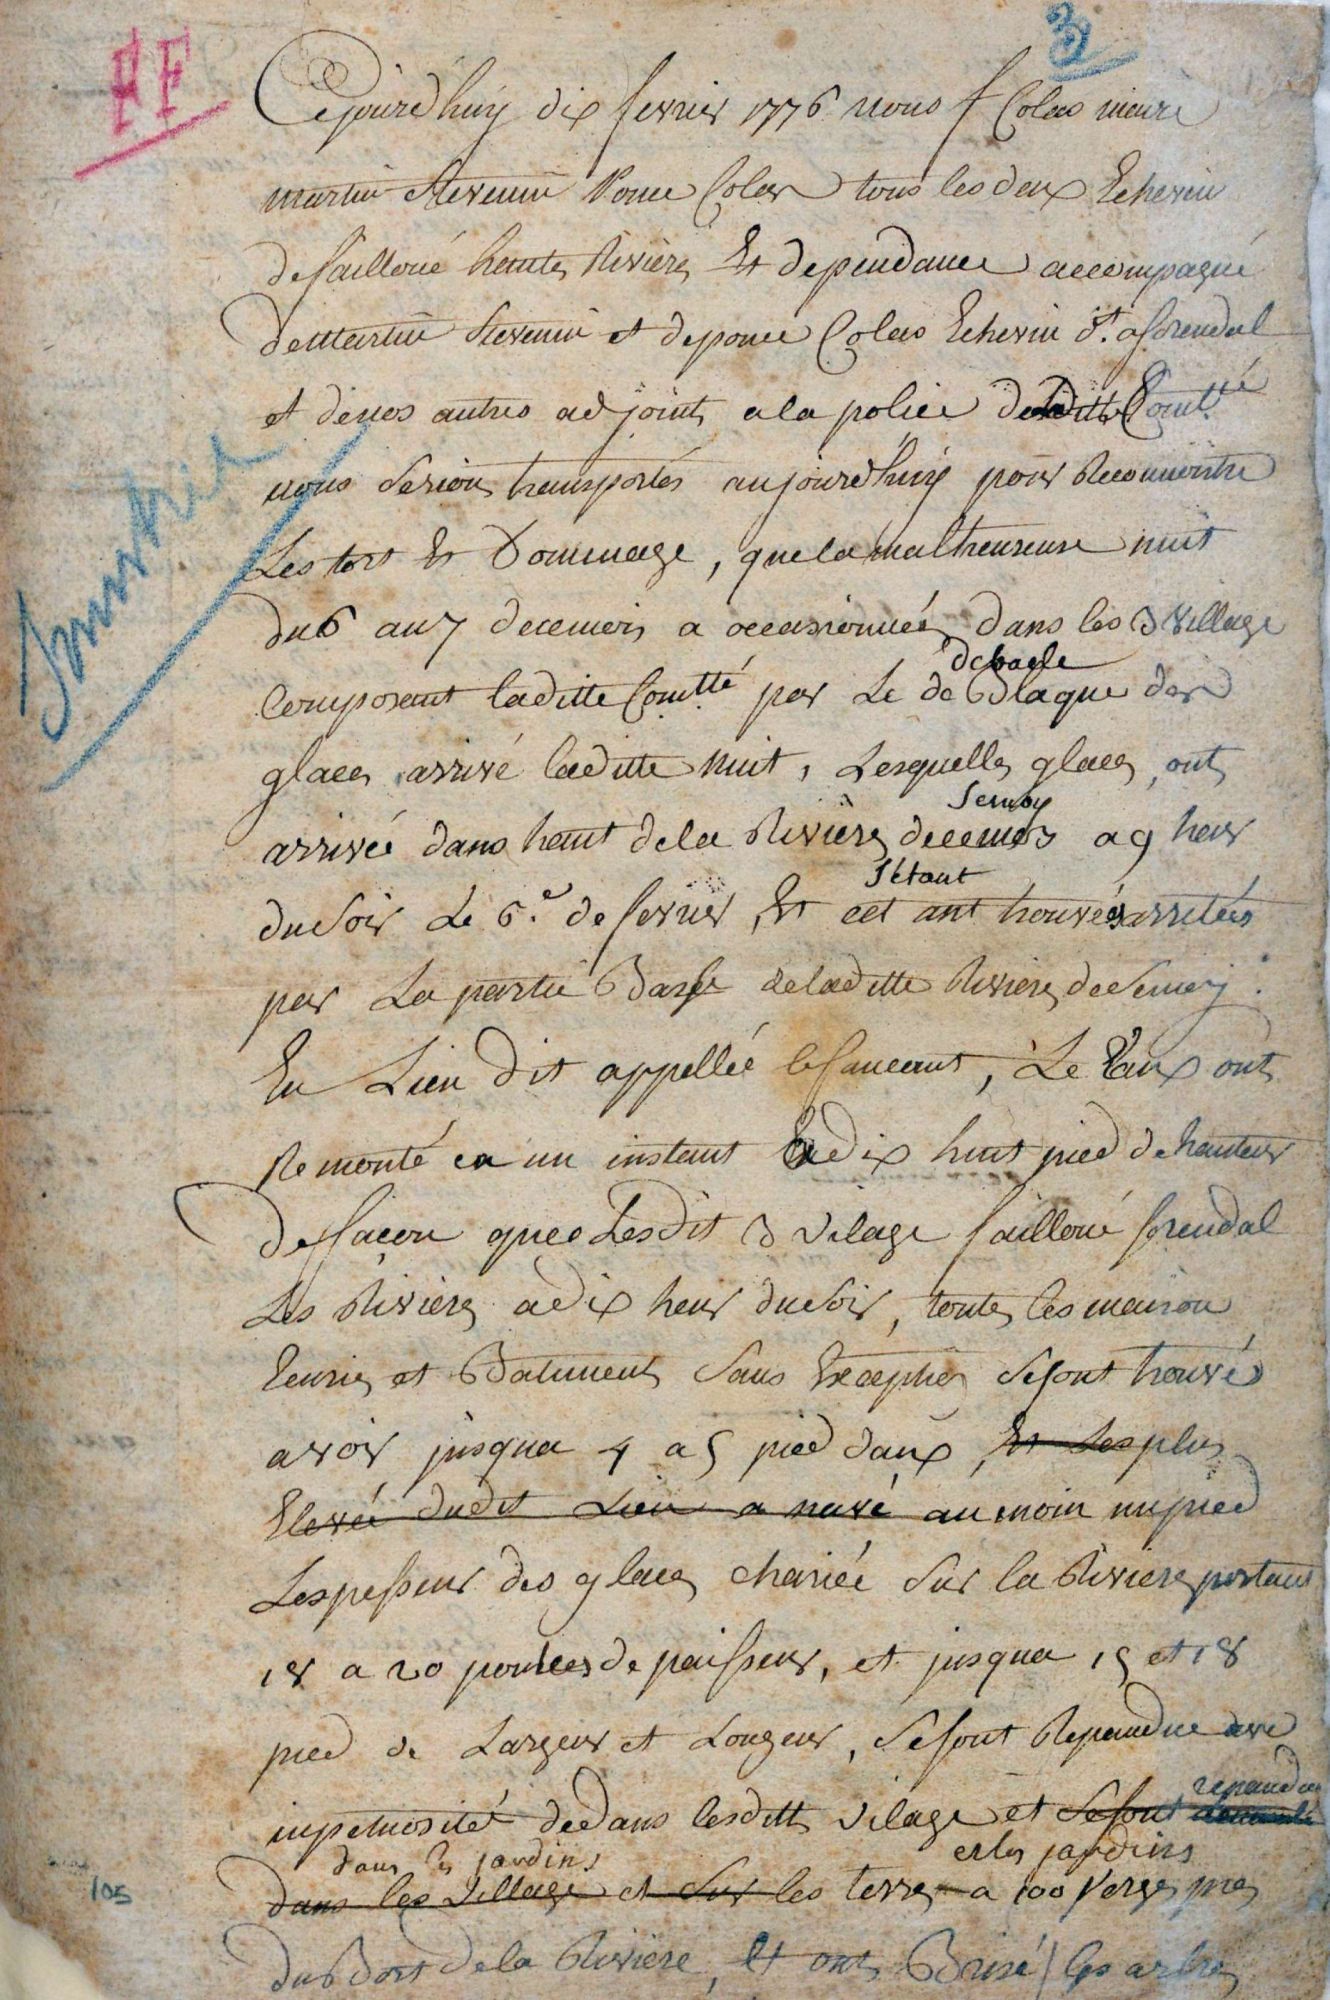 FF
3
Cejourd'huy dix fevrier 1776 nous f Colas maire
martin Stevenin Ponce Colas tous les deux Echevin
de failloué haute Riviere Et dependance accompagné
de Martin Stevenin et de ponce Colas Echevin dt a sorendal
et de nos autres adjoints a la police de laditte Comtté
nous serions transportés aujourd'huy pour Reconnoitre
Les tort Et Dommage, que la malheureuse nuit
du 6 au 7 decemois a occasionnées dans les 3 village
debacle
Composant laditte Comtté par Le de Blaque des
glaces arrivé laditte nuit, Lesquelles glaces, ont
Semoy
arrivée dans haut de la Riviere decemois a 9 heur
s'étant
du soir Le 6.e de fevrier, Et cet ant trouvées arretées
par La partie Basse de laditte Riviere de Semoy.
En Lieu dit appellée le faucant, Le Eaux ont
Remonté en un instant a dix huit pied de hauteur
De facon que Lesdit 3 vilage failloué sorendal
Les Riviere a dix heur du soir, toutes les maison
Ecurie et Batiments sans Exception se sont trouvé
avoir jusqua 4 a 5 pied d'aux, Et Les plus
Elevée dudit Lieu a navé au moin un pied
Lespesseur des glaces chariée sur la Riviere portant
18 a 20 pouces de paisseur, et jusqua 15 et 18
pied de Largeur et Longeur, se sont Repandue avec
repandues
inpetuosité dedans lesditt vilage et se sont
dans les jardins et les jardins
dans les village et sur les terres a 100 verges pres
du Bort de la Riviere, Et ont Brisé les arbres
105